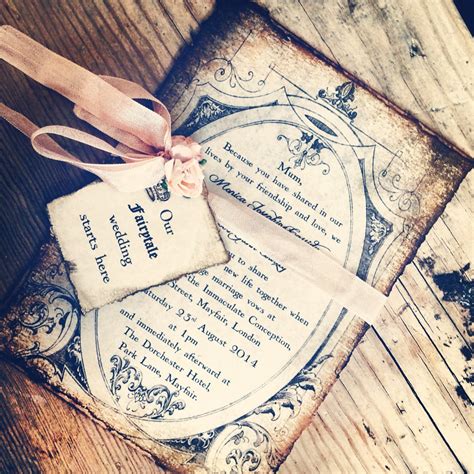 Our
Fairytale
wedding
starts here
Mum,
Because you have shared in our
lives by your friendship and love, we
to share
new life together when
marriage vows at
the Immaculate Conception,
Street, Mayfair, London
Saturday 23rd August 2014
at 1pm
and immediately afterward at
The Dorchester Hotel
Park Lane, Mayfair.